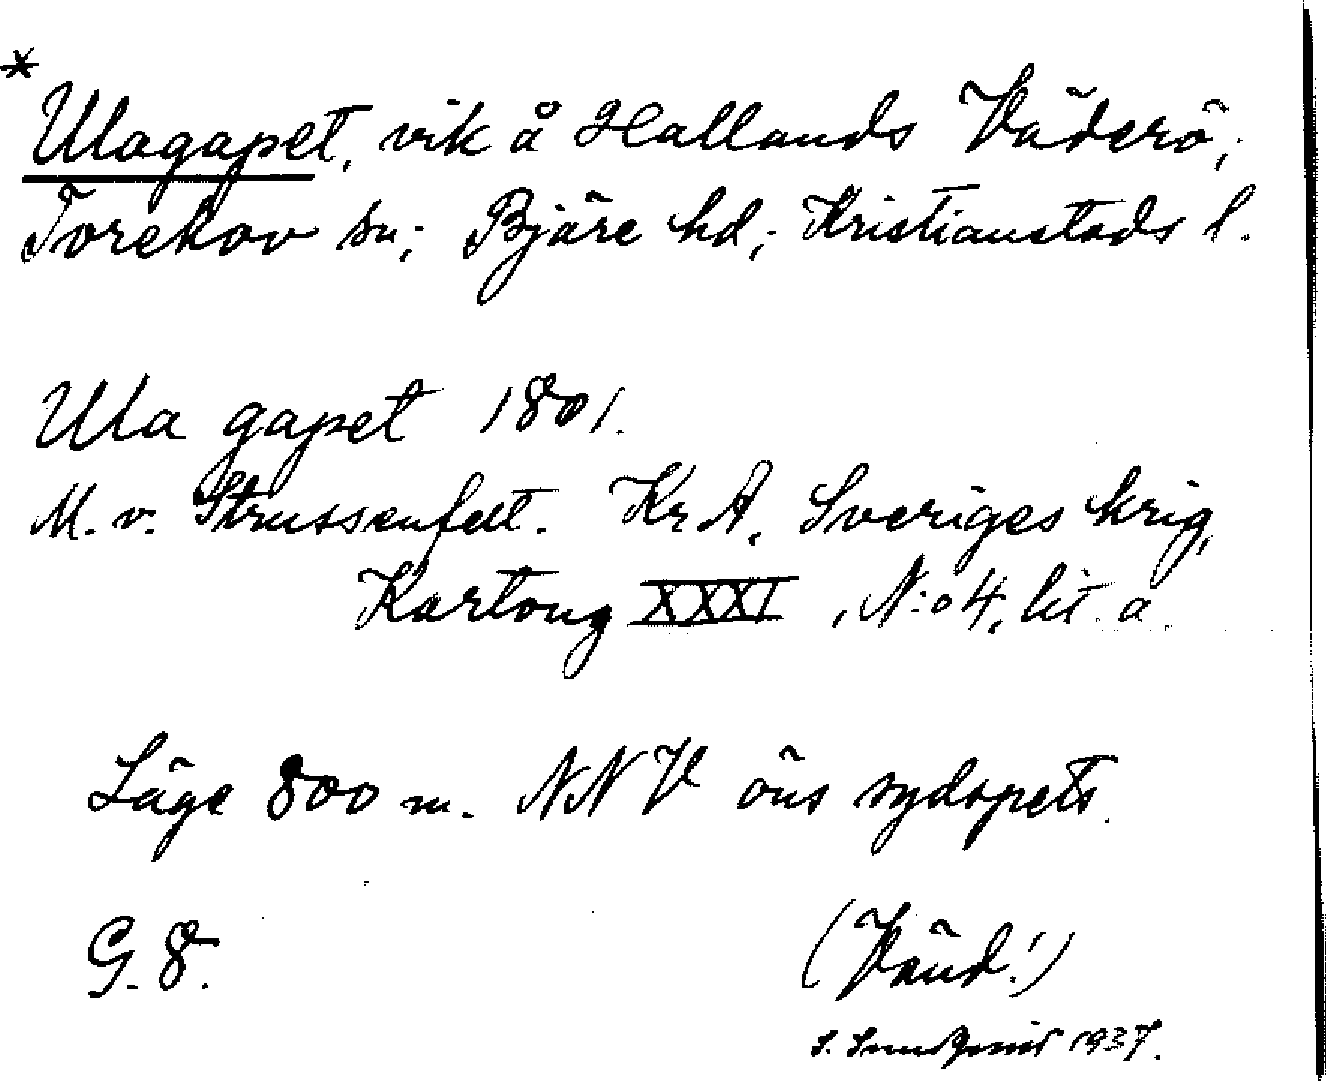 *
Ulagapet, vik å Hallands Väderö,
Torekov sn; Bjäre hd; Kristianstads l.
Ula gapet 1801.
M. v. Strussenfelt. Kr A. Sveriges krig,
Kartong XXXI, N:o 4, lit. a.
Läge 800 m. NNV öns sydspets.
G. 8.
(Vänd!)
S. 1937.